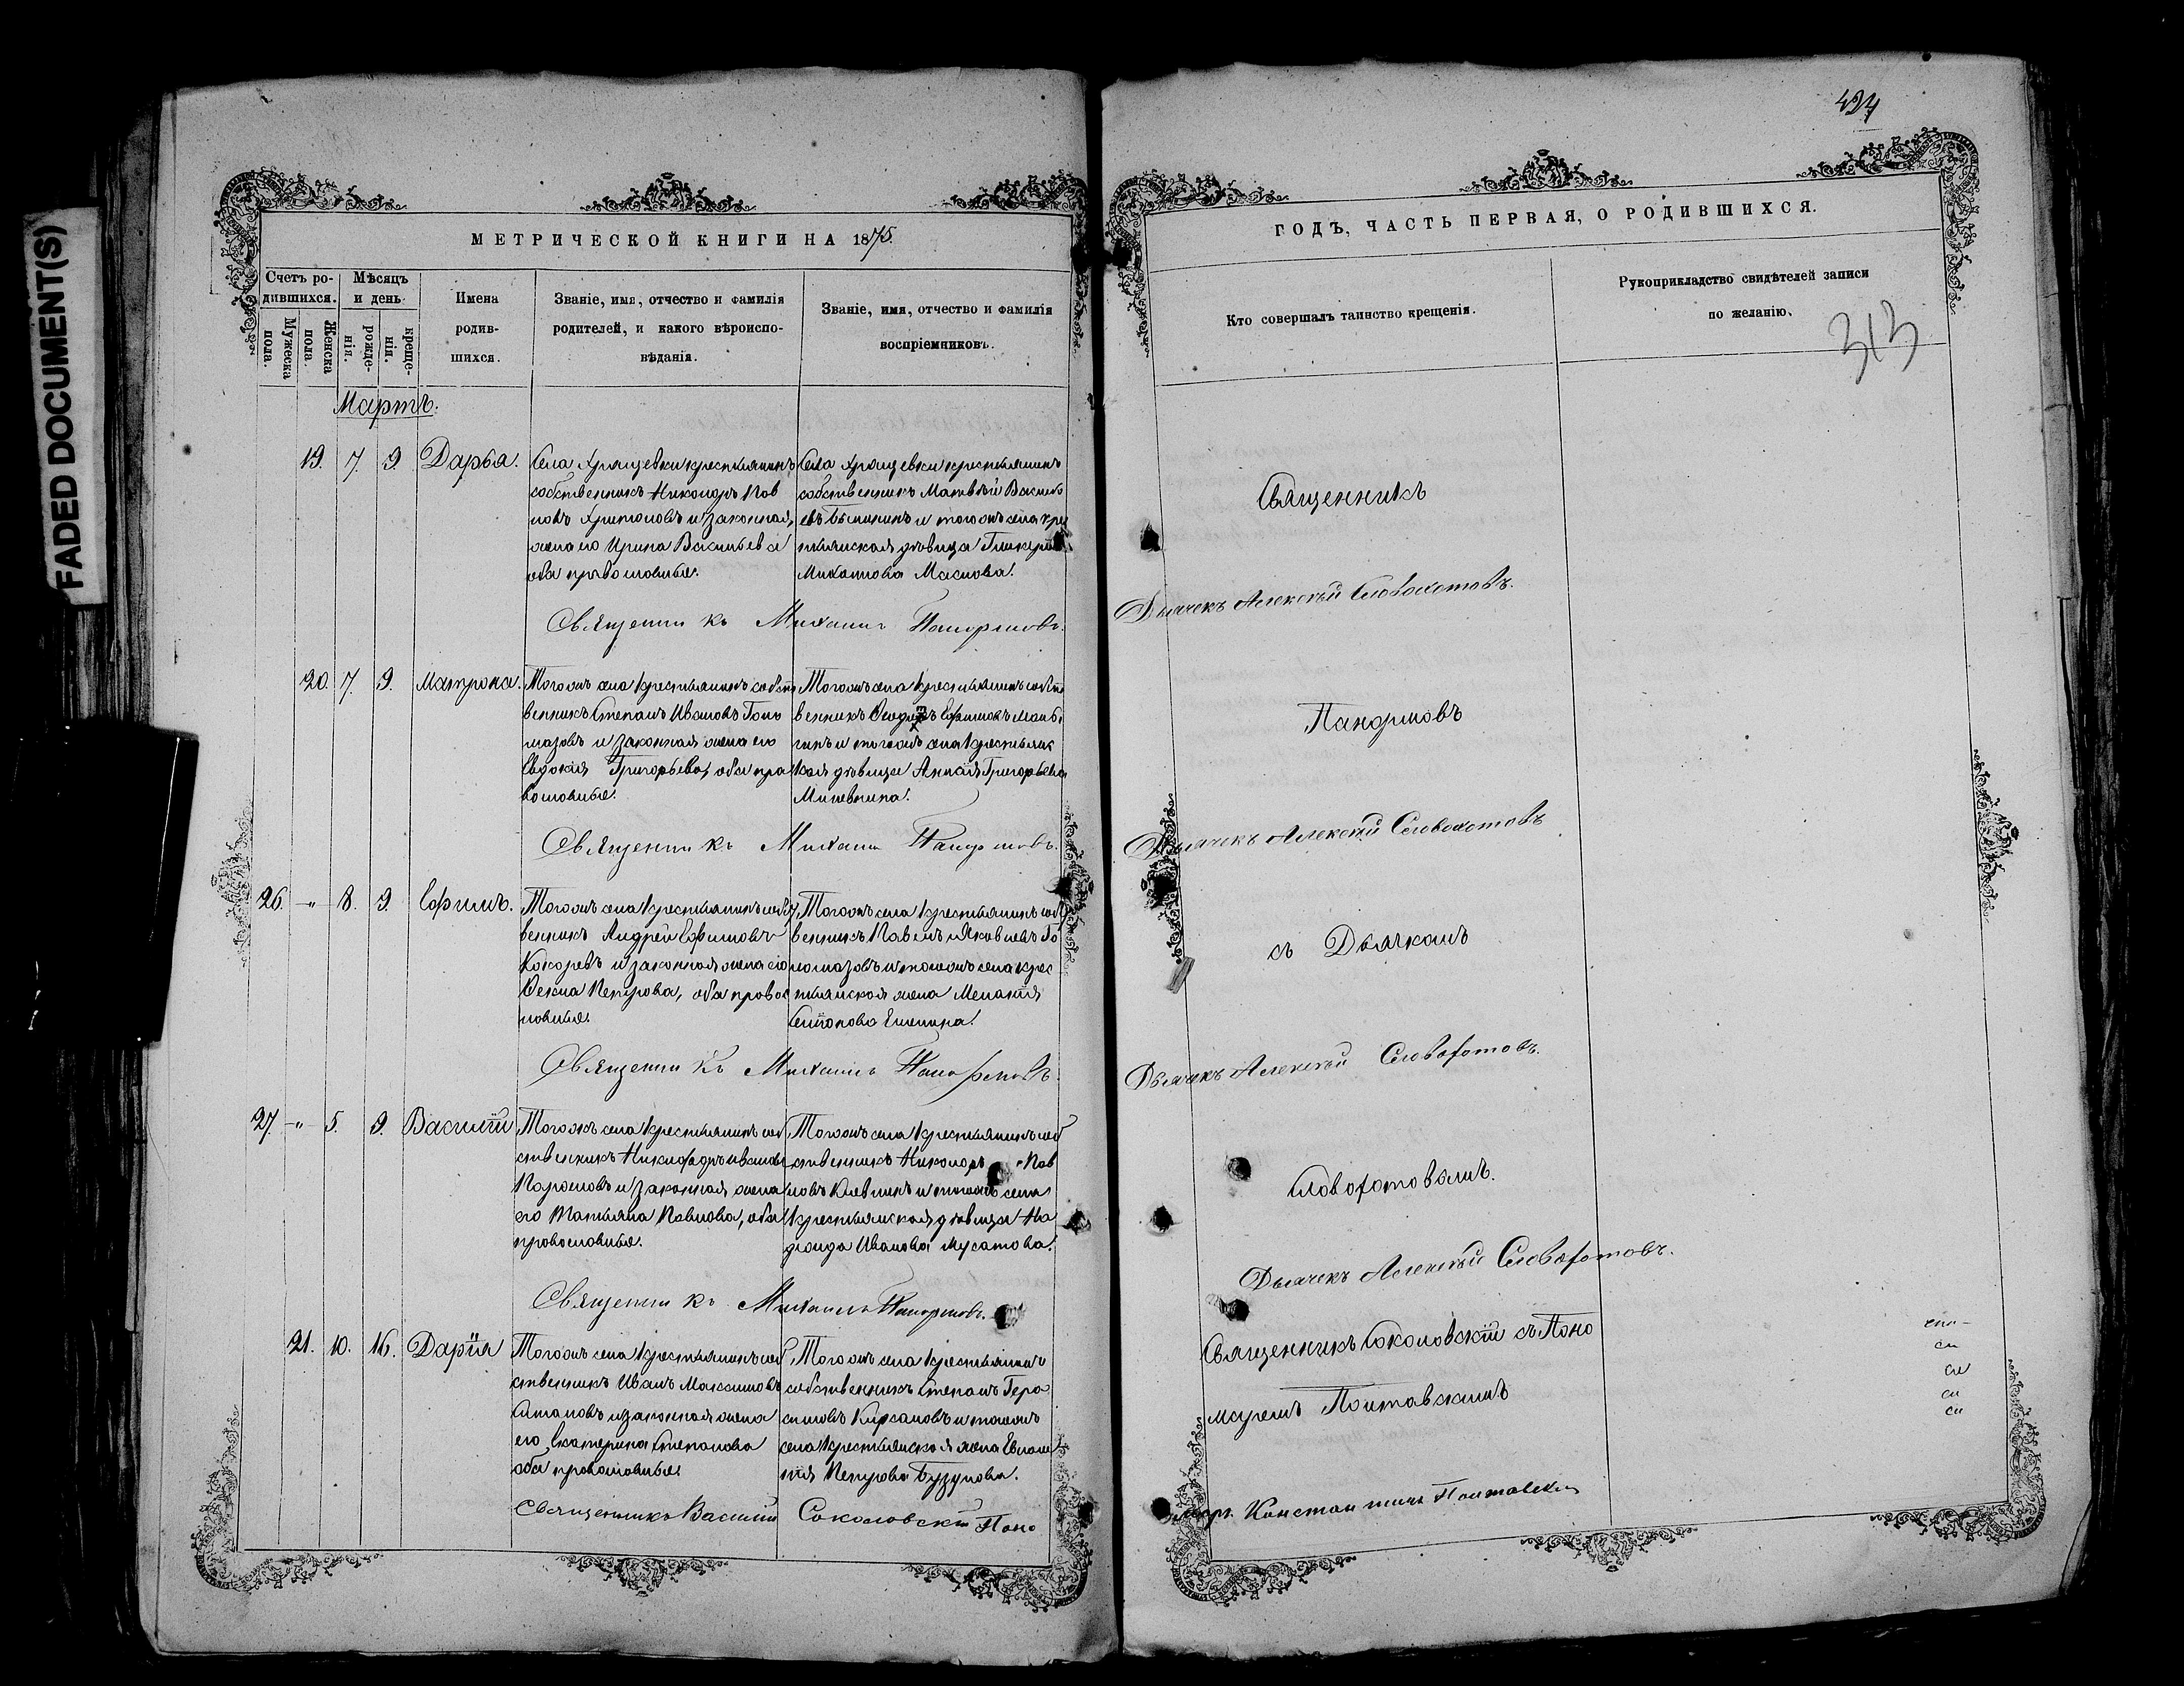 FADED DOCUMENT(S)
МЕТРИЧЕСКОЙ КНИГИ НА 1875.
Счетъ ро-
дившихся.
Мужеска
пола.
Женска
пола.
Мѣсяцъ
и день
рожде-
нія.
креще-
нія.
Имена
родив-
шихся.
Званіе, имя, отчество и фамилія
родителей, и какого вѣроиспо-
вѣданія.
Званіе, имя, отчество и фамилія
воспріемниковъ.
Мартъ.
19. 7. 9. Дарья.
Села Хрящевки крестьянинъ
собственникъ Никаноръ Пав
ловъ Харитоновъ и законная
жена его Ирина Васильева
оба православные.
Села Хрящевки крестьянинъ
собственникъ Матвѣй Василь
евъ и тогожъ села кре
стьянская дѣвица Гликерія
Михаилова Маслова.
Священникъ Михаилъ
20. 7. 9. Матрона.
Тогожъ села крестьянинъ собст
венникъ Степанъ Ивановъ Голо
мазовъ и законная жена его
Евдокія Григорьева, оба пра
вославные.
Тогожъ села крестьянинъ собст
венникъ Ефимовъ
и тогожъ села крестьянс
кая дѣвица Григорьева
Священникъ Михаилъ
26. -"- 8. 9. Ефимъ.
Тогожъ села крестьянинъ собст
венникъ Андрей Ефимовъ
Кокоревъ и законная жена его
Фекла Петрова, оба правос
лавные.
Тогожъ села крестьянинъ собст
венникъ Павелъ Яковлевъ Го
ломазовъ и тогожъ села крес
тьянская жена Меланія
Священникъ Михаилъ
27. -"- 5. 9. Василій
Тогожъ села крестьянинъ соб
ственникъ Ивановъ
и законная жена
его Татьяна Павлова, оба
православные.
Тогожъ села крестьянинъ соб
ственникъ Никаноръ Пав
ловъ и тогожъ села
крестьянская дѣвица На
дежда Иванова Мусатова.
Священникъ Михаилъ
21. 10. 16. Дарія
Тогожъ села крестьянинъ соб
ственникъ Иванъ Максимовъ
и законная жена
его Екатерина Степанова
оба православные.
Тогожъ села крестьянинъ
собственникъ Степанъ Гера
симовъ Кирсановъ и тогожъ
села крестьянская жена Евлам
пія Петрова Бузунова.
Священникъ Василій Соколовскій Поно
424
ГОДЪ, ЧАСТЬ ПЕРВАЯ, О РОДИВШИХСЯ.
Кто совершалъ таинство крещенія.
Рукоприкладство свидѣтелей записи
по желанію.
313
Священникъ
Дьячекъ Алексѣй Словохотовъ.
Дьячекъ Алексѣй Словохотовъ
съ Дьячкомъ
Дьячекъ Алексѣй Словохотовъ.
Словохотовымъ.
Дьячекъ Алексѣй Словохотовъ.
Священникъ Соколовскій съ Поно
маремъ Полтавскимъ
Константинъ Полтавскій